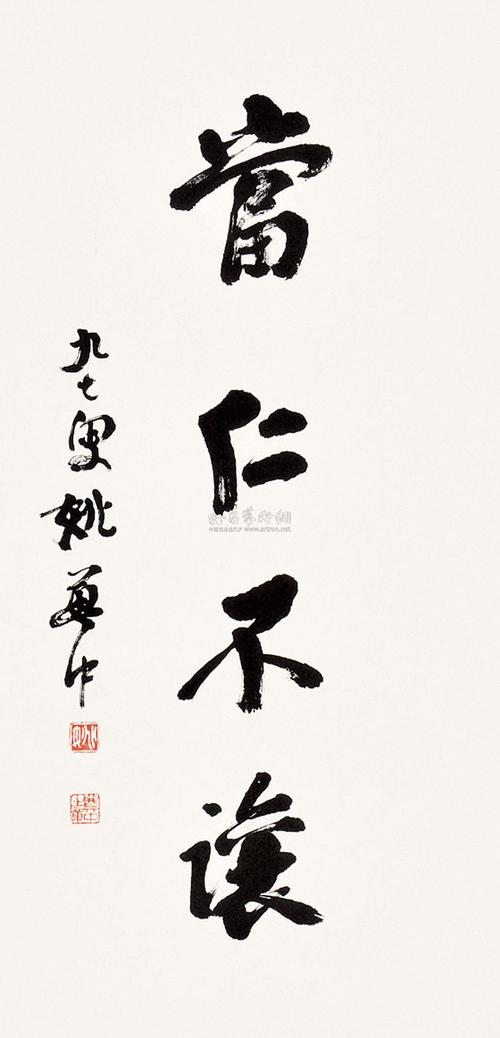 當仁不讓
九七叟姚奠中
www.artron.net